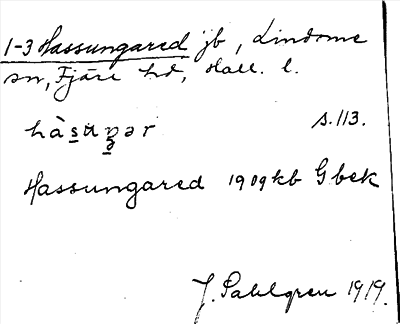 1-3 Hassungared jb, Lindome
sn, Fjäre hd, Hall. l.
s. 113.
Hassungared 1909 kb Gbek
J. Sahlgren 1919.